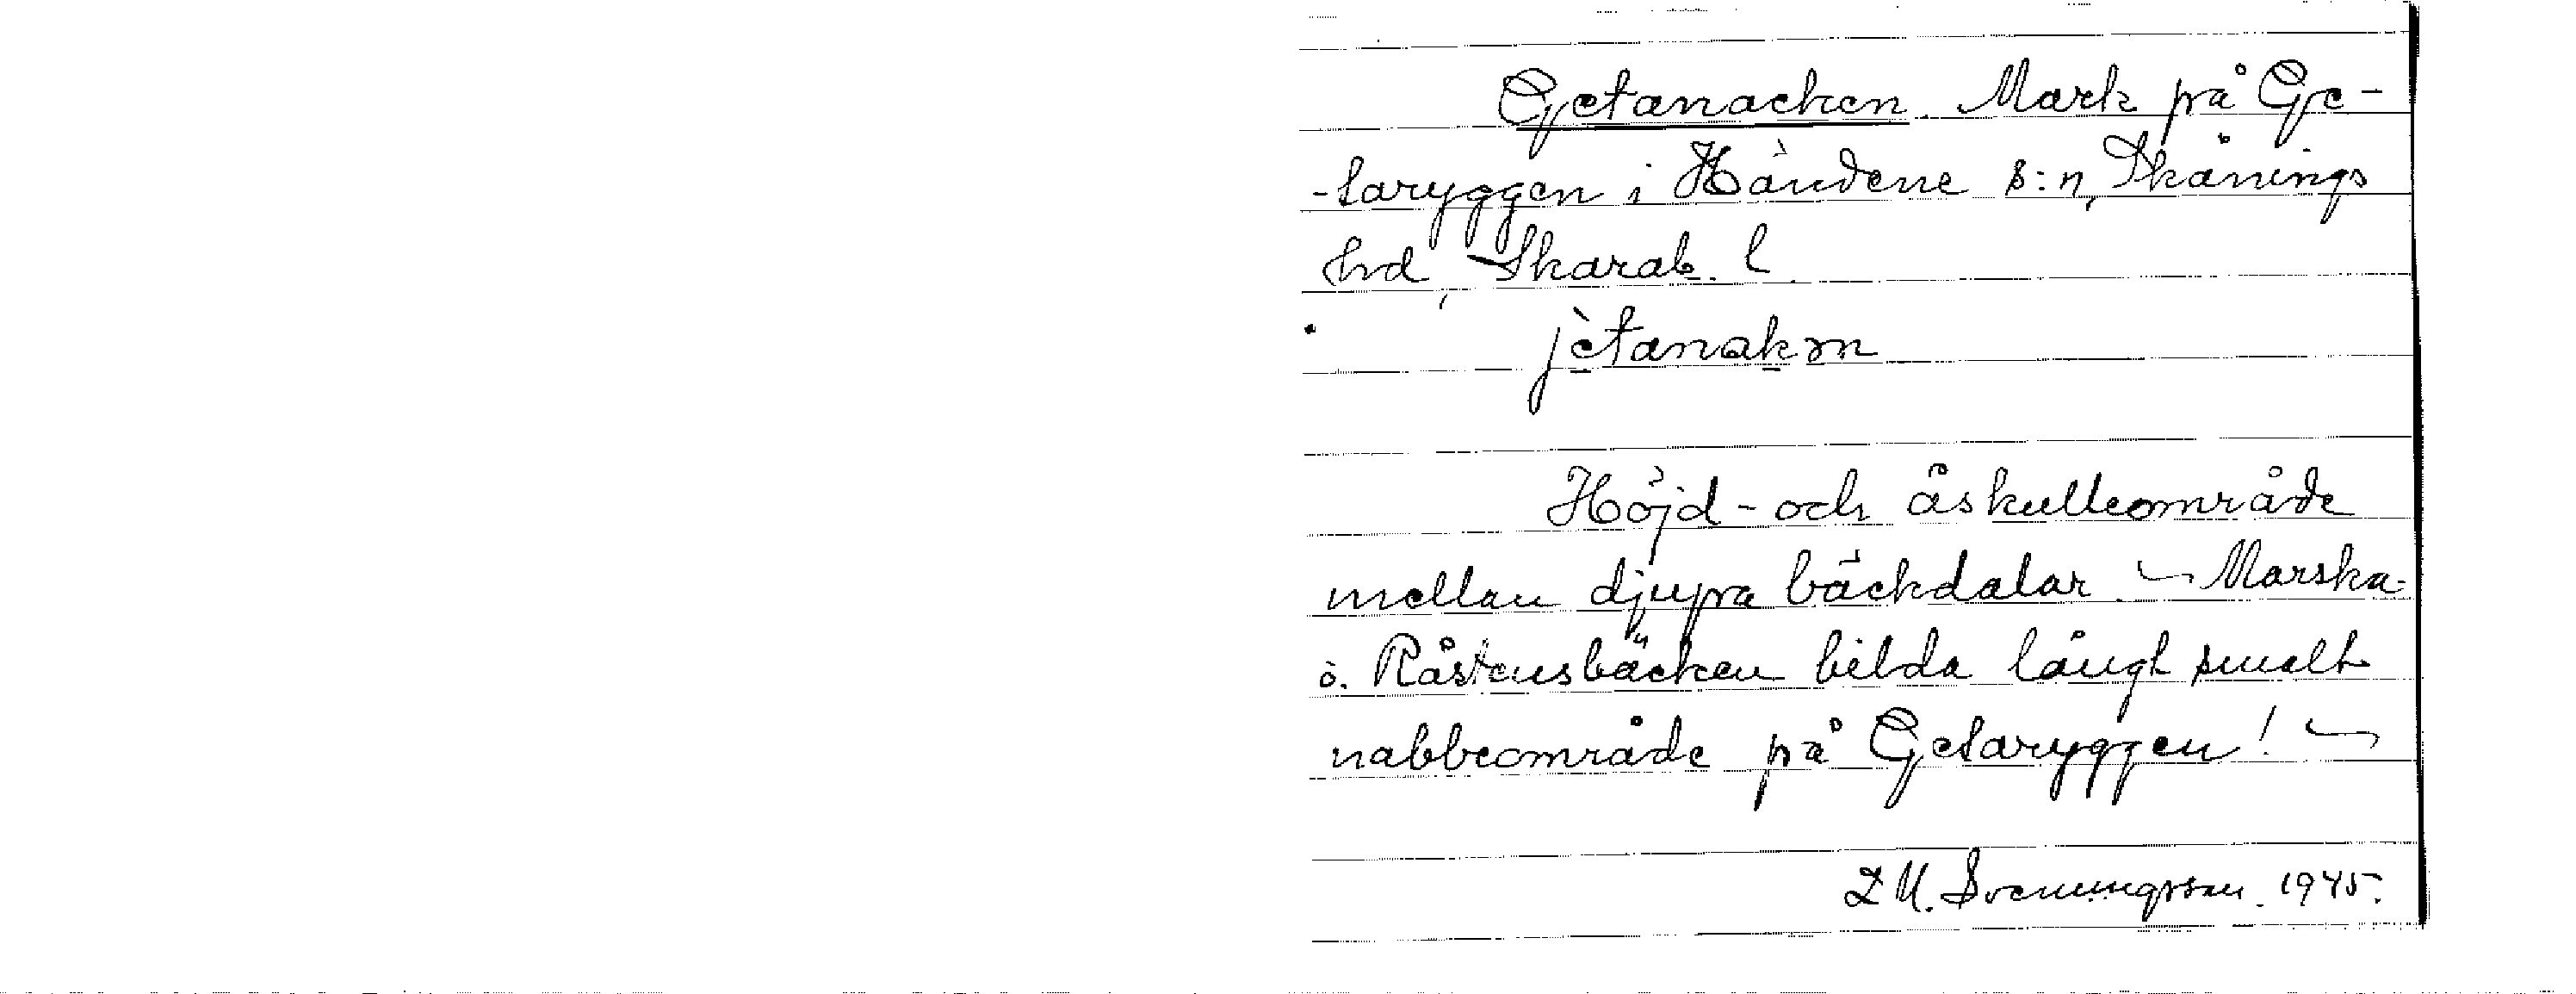 Getanacken. Mark på Ge-
-taryggen i Händene s:n, Skånings
hd, Skarab. l.
jètanakɜn
Höjd- och åskulleområde
mellan djupa bäckdalar. ~ Marska-
o. Råstensbäcken bilda långt smalt
nabbeområde på Getaryggen! ~
Z M. Svenningsson. 1945.